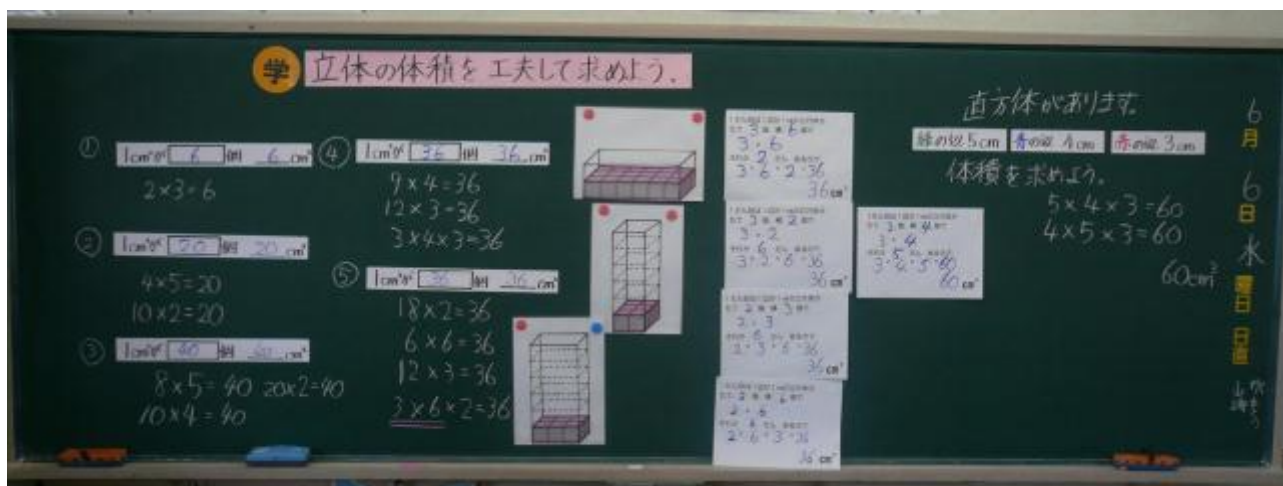 学 立体の体積を工夫して求めよう。
① 1cm³が 6 個 6 cm³
2×3=6
② 1cm³が 20 個 20 cm³
4×5=20
10×2=20
③ 1cm³が 40 個 40 cm³
8×5=40 20×2=40
10×4=40
④ 1cm³が 36 個 36 cm³
9×4=36
12×3=36
3×4×3=36
⑤ 1cm³が 36 個 36 cm³
18×2=36
6×6=36
12×3=36
3×6×2=36
3・6
3・6・2=36
36cm³
3・2
3・2・6=36
36cm³
2・3
2・3・6=36
36cm³
2・6
2・6・3=36
36cm³
3・4
3・4・5=60
60cm³
直方体があります。
緑の辺5cm 青の辺4cm 赤の辺3cm
体積を求めよう。
5×4×3=60
4×5×3=60
60cm³
6月6日水曜日 日直